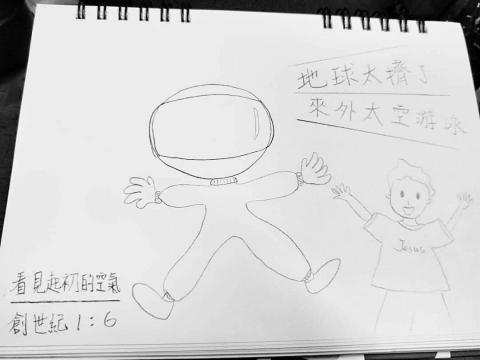 地球太擠了
來外太空游泳
Jesus
看見起初的空氣
創世紀 1:6